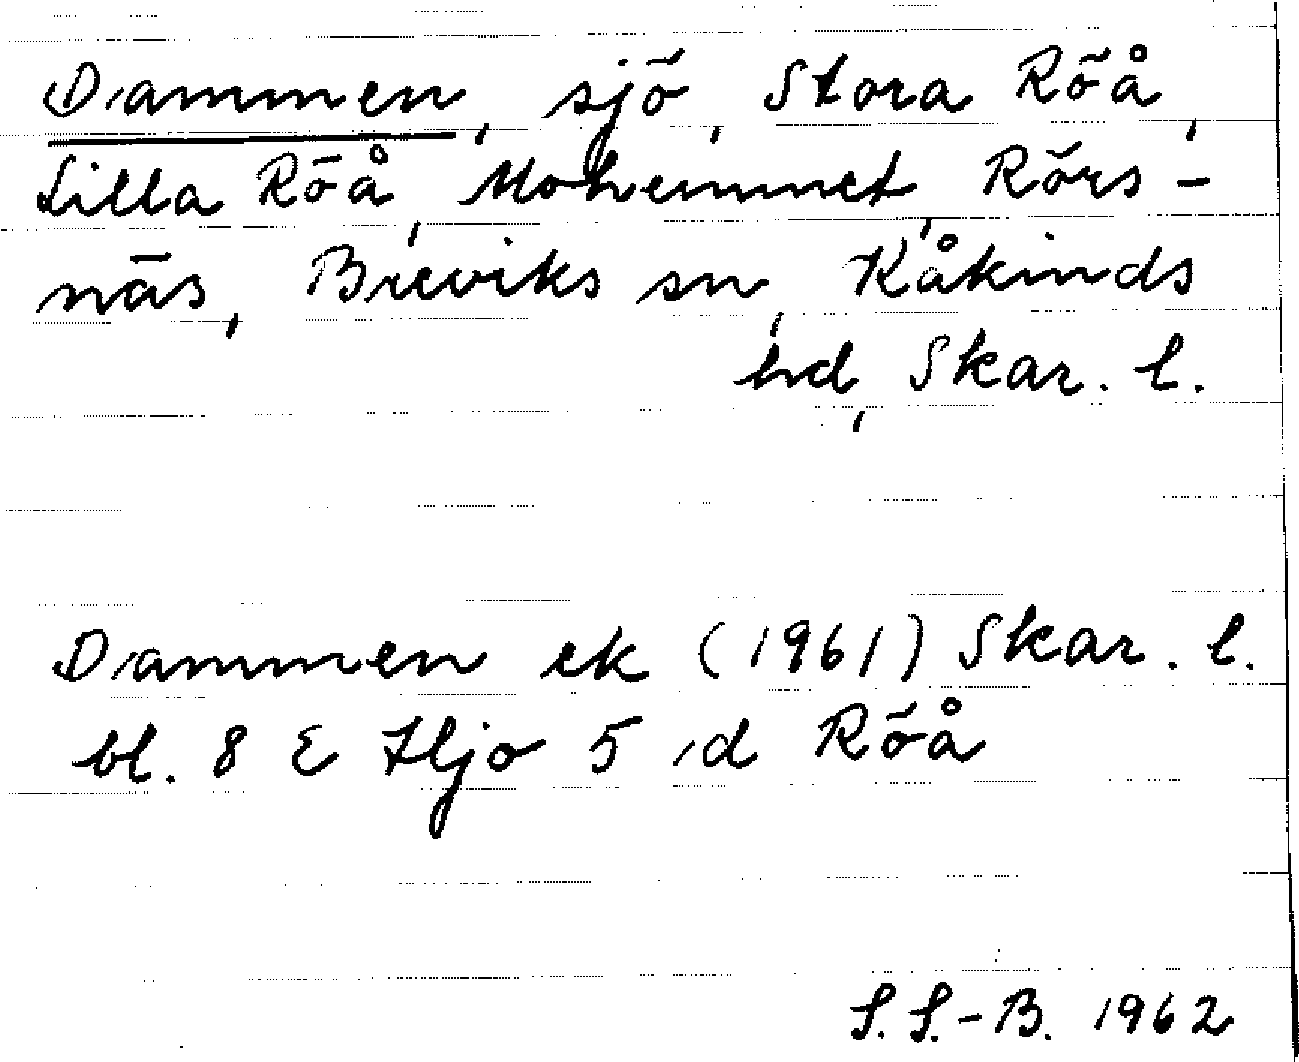 Dammen, sjö, Stora Röå,
Lilla Röå, Mohemmet, Rörs-
näs, Breviks sn, Kåkinds
hd, Skar. l.
Dammen ek (1961) Skar. l.
bl. 8 E Hjo 5 d Röå
S. S.-B. 1962